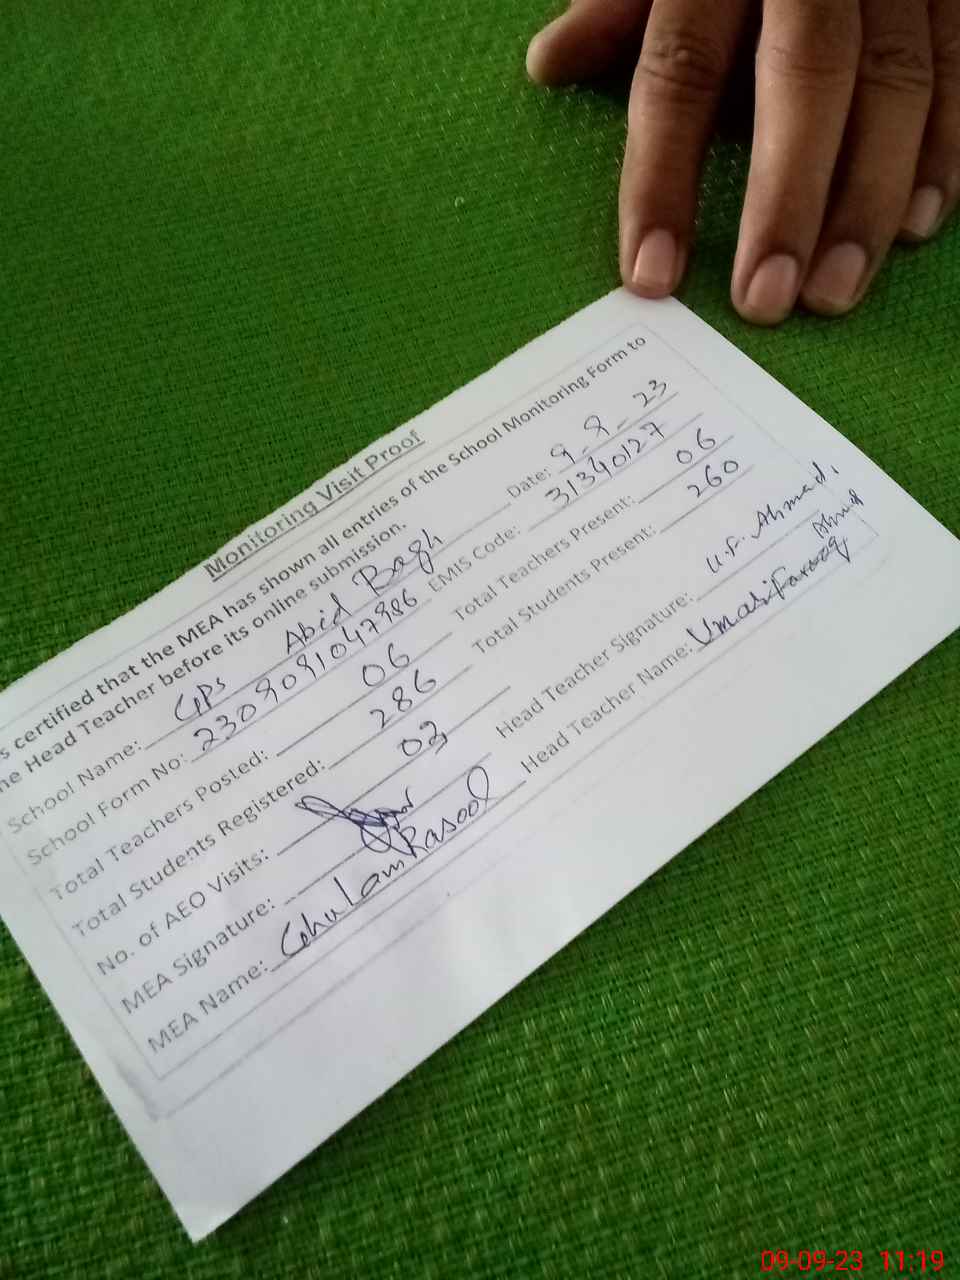 Monitoring Visit Proof
s certified that the MEA has shown all entries of the School Monitoring Form to
he Head Teacher before its online submission.
School Name: GPS Abid Bagh Date: 9-9-23
School Form No: 2309091047986 EMIS Code: 31340127
Total Teachers Posted: 06 Total Teachers Present: 06
Total Students Registered: 286 Total Students Present: 260
No. of AEO Visits: 03
MEA Signature: Head Teacher Signature: U.F. Ahmad.
MEA Name: Ghulam Rasool Head Teacher Name: Umar Farooq Ahmad
09-09-23 11:19